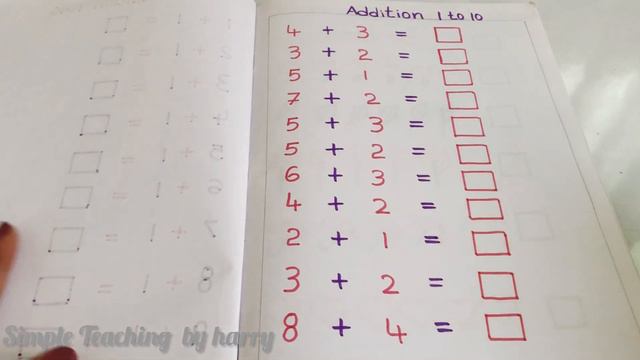 Addition 1 to 10
4 + 3 =
3 + 2 =
5 + 1 =
7 + 2 =
5 + 3 =
5 + 2 =
6 + 3 =
4 + 2 =
2 + 1 =
3 + 2 =
8 + 4 =
Simple Teaching by harry